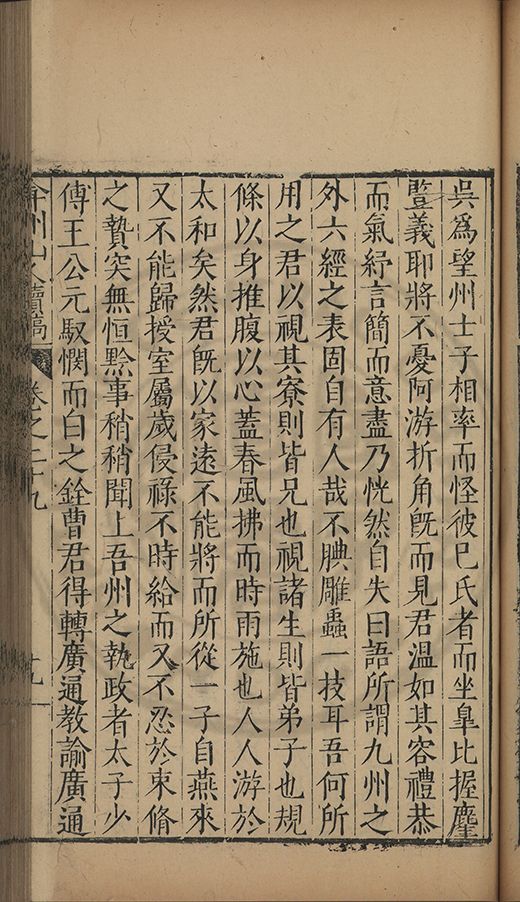 吳爲望州士子相率而怪彼巳氏者而坐臯比握麈
登義耶將不憂阿游折角旣而見君溫如其容禮恭
而氣紓言簡而意盡乃恍然自失曰語所謂九州之
外六經之表固自有人哉不腆雕蟲一技耳吾何所
用之君以視其寮則皆兄也視諸生則皆弟子也規
條以身推腹以心蓋春風拂而時雨施也人人游於
太和矣然君旣以家遠不能將而所從一子自燕來
又不能歸授室屬歲侵祿不時給而又不忍於束脩
之贄突無恒黔事稍稍聞上吾州之執政者太子少
傅王公元馭憫而白之銓曹君得轉廣通教諭廣通
弇州山人續稿
卷之二十九
十九